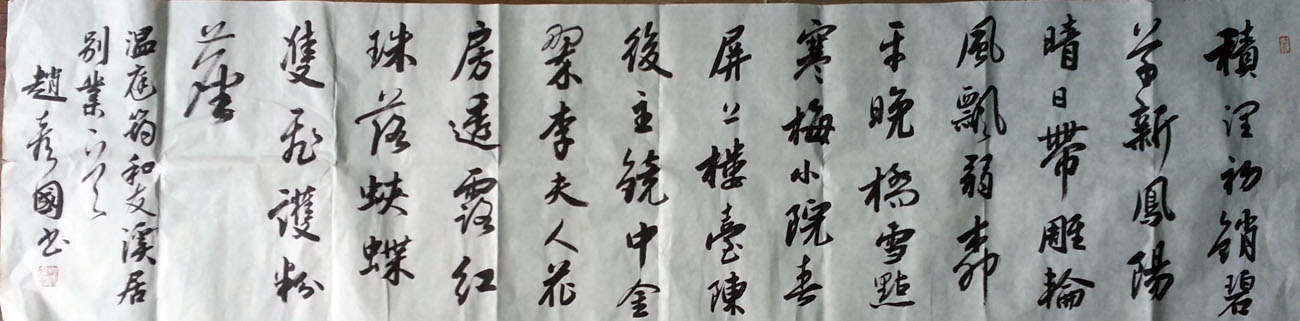 積潤初銷碧
草新鳳陽
晴日帶雕輪
風飄弱柳
平晚橋雪點
寒梅小院春
屏上樓臺陳
後主鏡中金
翠李夫人花
房透露红
珠落蛱蝶
雙飛護粉
塵
温庭筠和友溪居
别業
趙彦國书